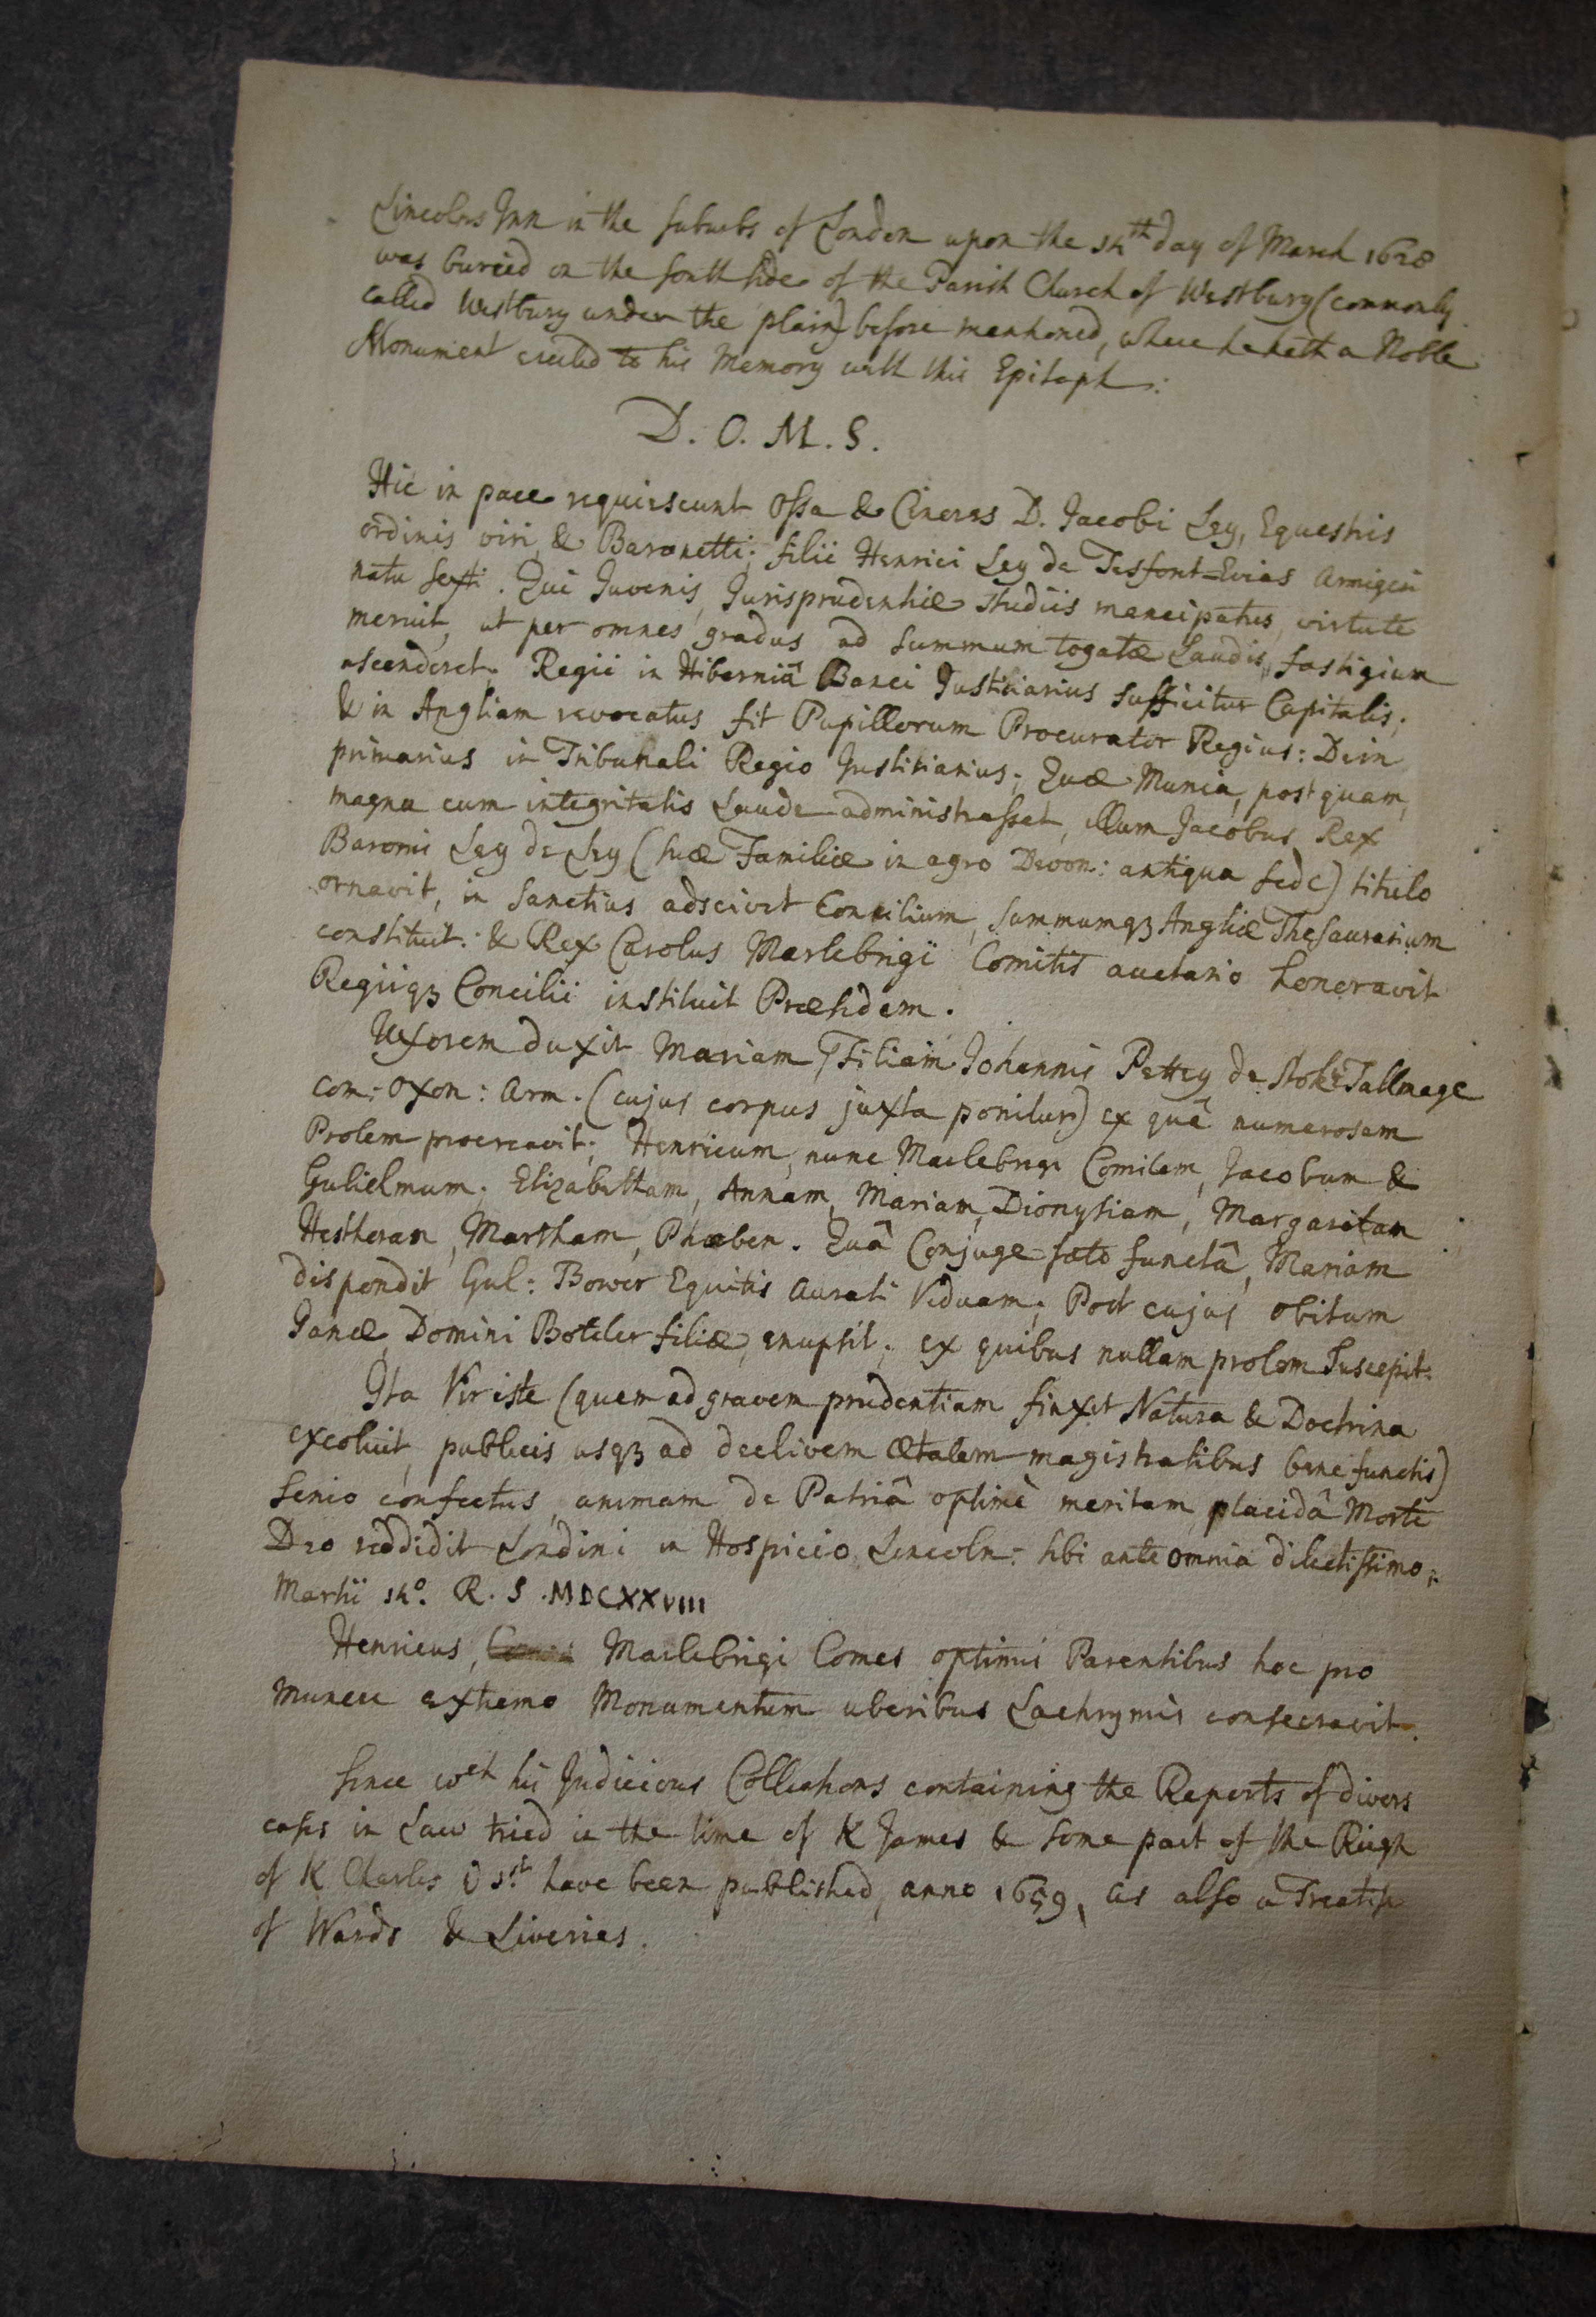 Lincolns Inn in the suburbs of London upon the 14th day of March 1628
was buried on the south side of the Parish Church of Westbury (commonly
called Westbury under the plain) before mentioned, where he hath a Noble
Monument erected to his Memory with this Epitaph:
D. O. M. S.
Hic in pace requiescunt Ossa & Cineres D. Jacobi Ley, Equestris
ordinis viri & Baronetti; filii Henrici Ley de Tesfont-Evias Armigeri
natu sexti. Qui Juvenis, Jurisprudentiæ studiis mancipatus, virtute
meruit, ut per omnes gradus ad summum togatæ Laudis, fastigium
ascenderet. Regii in Hiberniâ Banci Justitiarius sufficitur Capitalis;
& in Angliam revocatus fit Pupillorum Procurator Regius: Dein
primarius in Tribunali Regio Justitiarius; Quæ Munia, postquam,
magna cum integritatis Laude administrasset, illum Jacobus Rex
Baronis Ley de Ley (suæ Familiæ in agro Devon: antiqua sede) titulo
ornavit, in Sanctius adscivit Concilium, summumqȝ Angliæ Thesaurarium
constituit: & Rex Carolus Marlebrigii Comitis auctario honoravit
Regiiqȝ Concilii instituit Præsidem.
Uxorem duxit Mariam, Filiam Johannis Pettey de Stoke Tallmage
com: Oxon: Arm. (cujus corpus juxta ponitur) ex quâ numerosam
Prolem procreavit; Henricum, nunc Marlebrigi Comitem, Jacobum &
Gulielmum. Elizabetham, Annam, Mariam, Dionysiam, Margaritam
Hestheram, Martham, Phœben. Quâ Conjuge fato functâ, Mariam
dispondit Gul: Bower Equitis Aurati Viduam; Post cujus obitum
Janæ, Domini Boteler filiæ, enupsit; ex quibus nullam prolem suscepit.
Ita Vir iste (quem ad gravem prudentiam finxit Natura & Doctrina
excoluit, publicis usqȝ ad declivem ætatem magistratibus bene functis)
senio confectus, animam de Patriâ optimè meritam, placidâ Morte
Deo reddidit Londini in Hospicio Lincoln: sibi ante omnia dilectissimo,
Martii 14º. R. S. MDCXXVIII
Henricus, Marlebrigi Comes optimis Parentibus hoc pro
munere extremo Monumentum uberibus Lachrymis consecravit.
Since wch his Judicious Collections containing the Reports of divers
cases in Law tried in the time of K James & some part of the Reign
of K Charles 1st have been published, anno 1659, as also a Treatise
of Wards & Liveries.